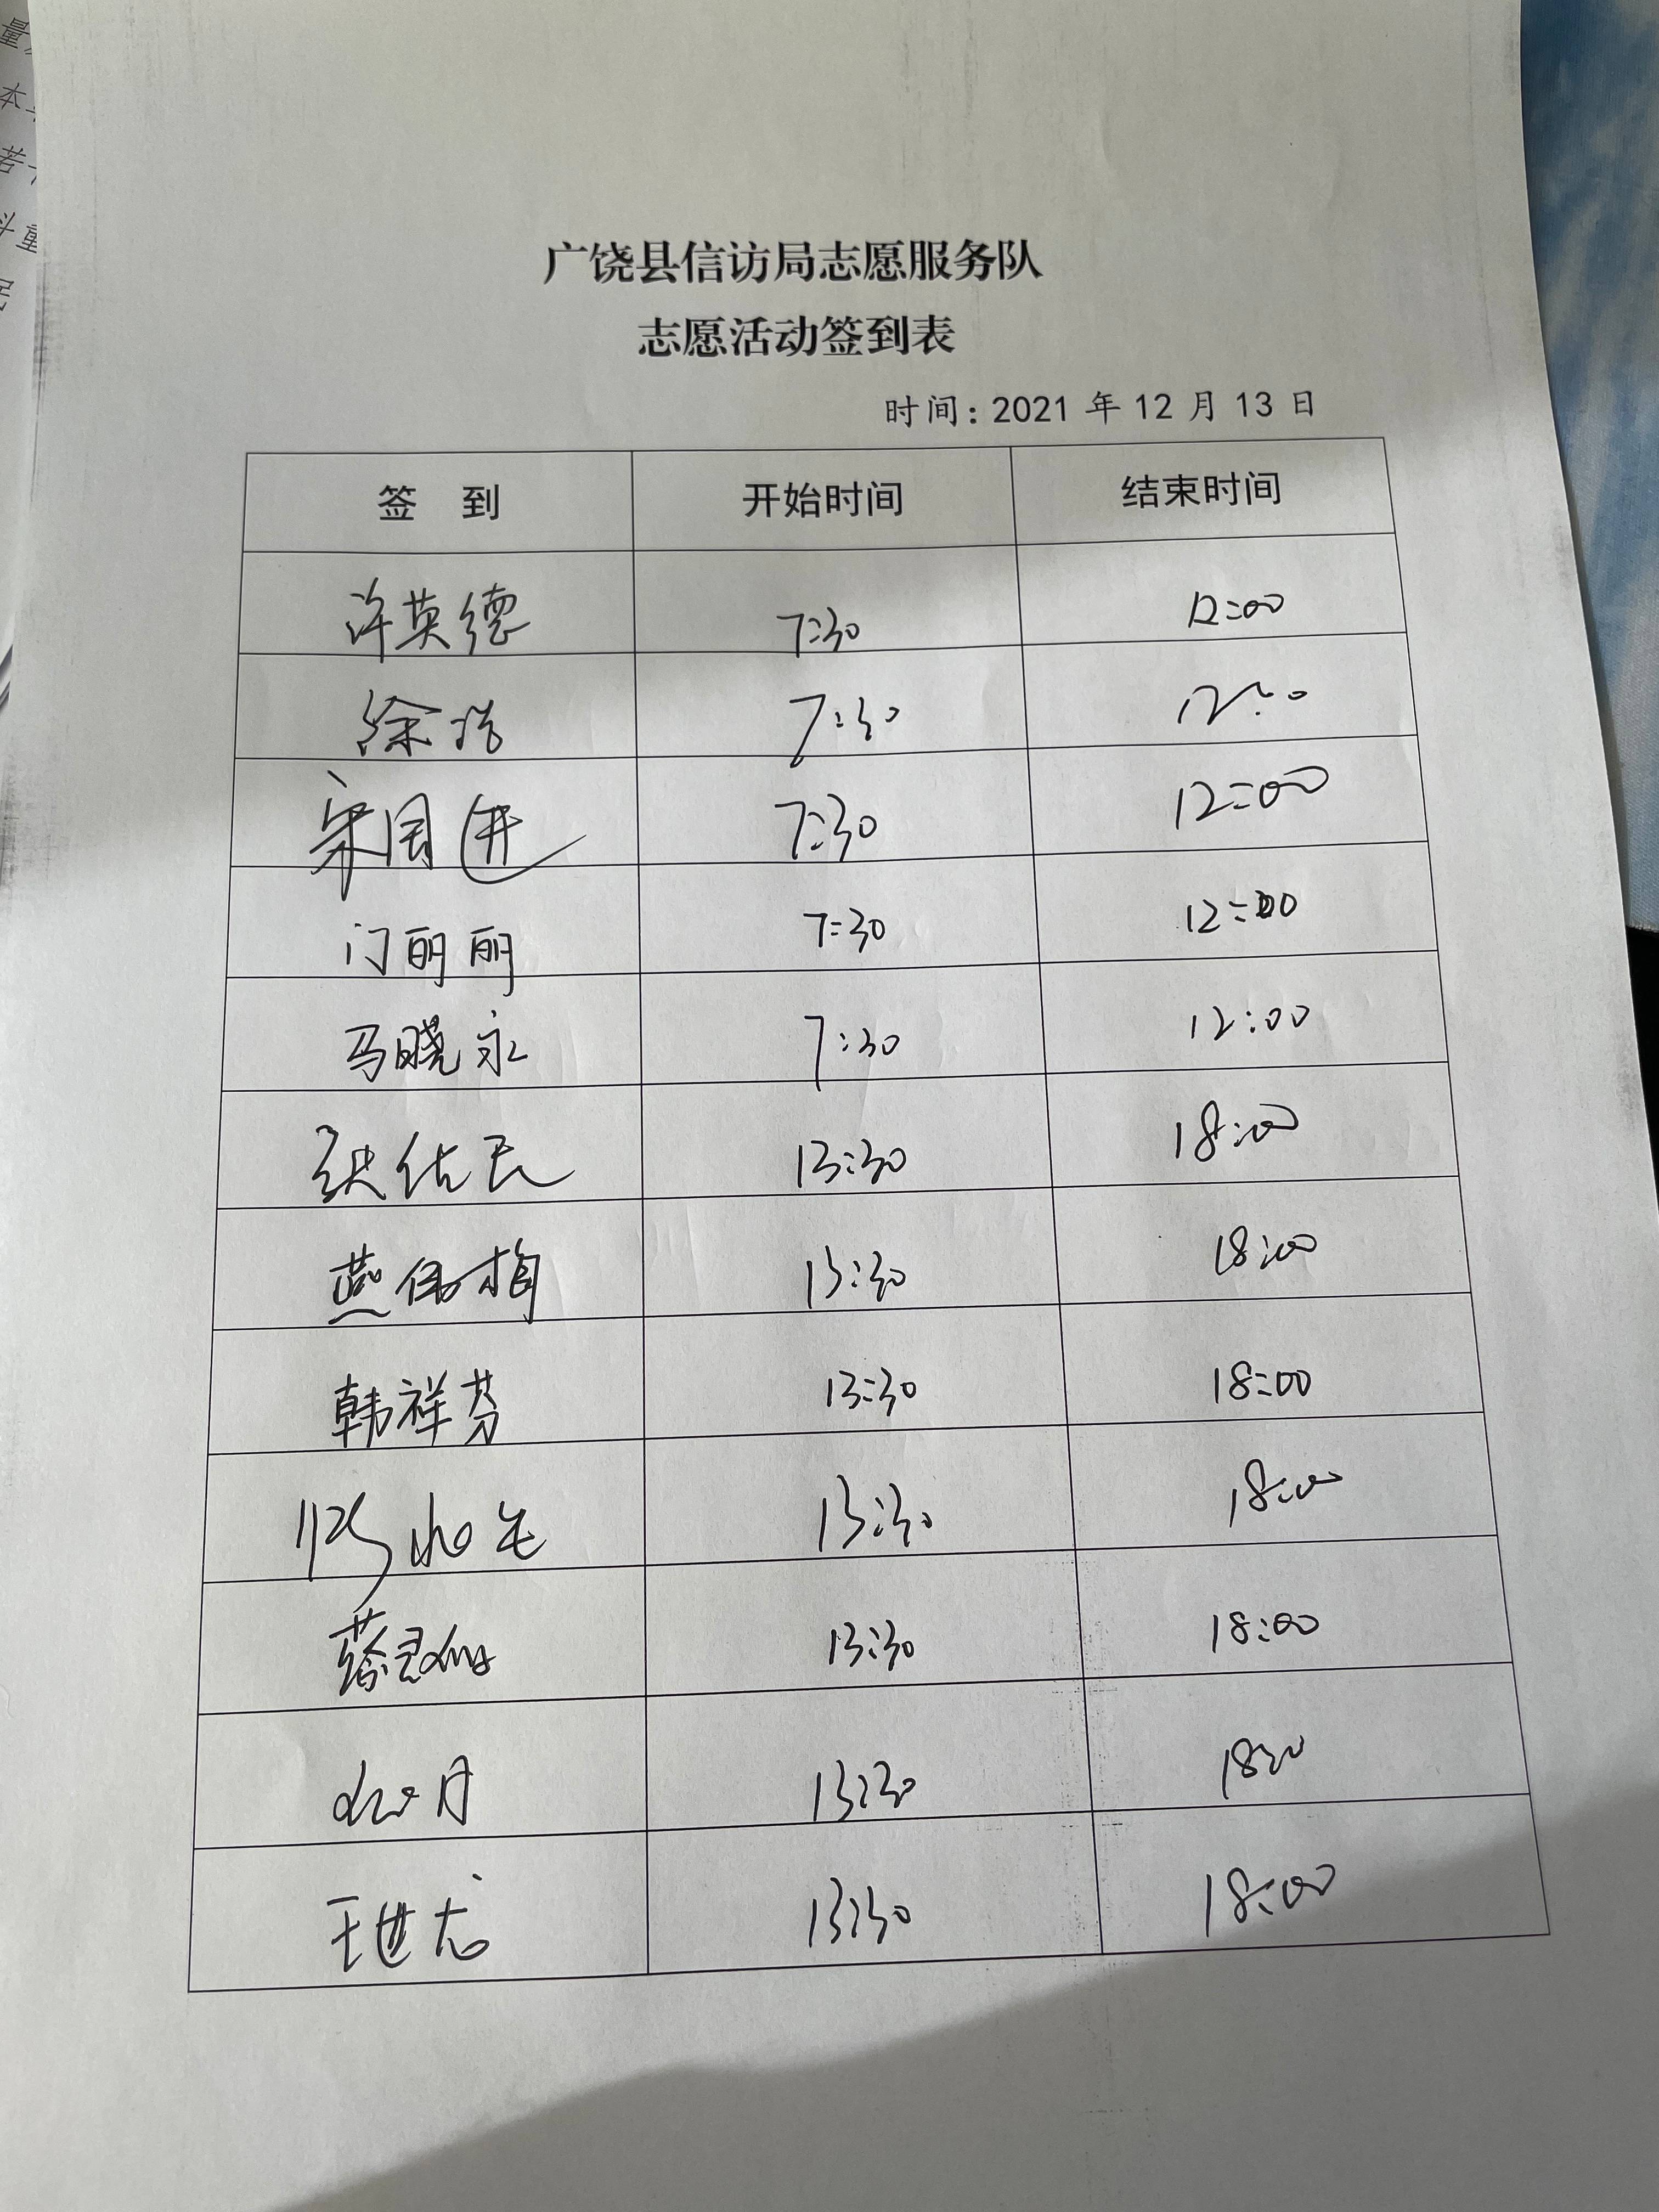 广饶县信访局志愿服务队
志愿活动签到表
时间：2021 年 12 月 13 日
签 到 开始时间 结束时间
许英德 7:30 12:00
徐 7:30 12:00
宋国进 7:30 12:00
门丽丽 7:30 12:00
马晓永 7:30 12:00
13:30 18:00
燕伟梅 13:30 18:00
韩祥芬 13:30 18:00
13:30 18:00
13:30 18:00
13:30 18:00
王世龙 13:30 18:00
量
本
若
斗重